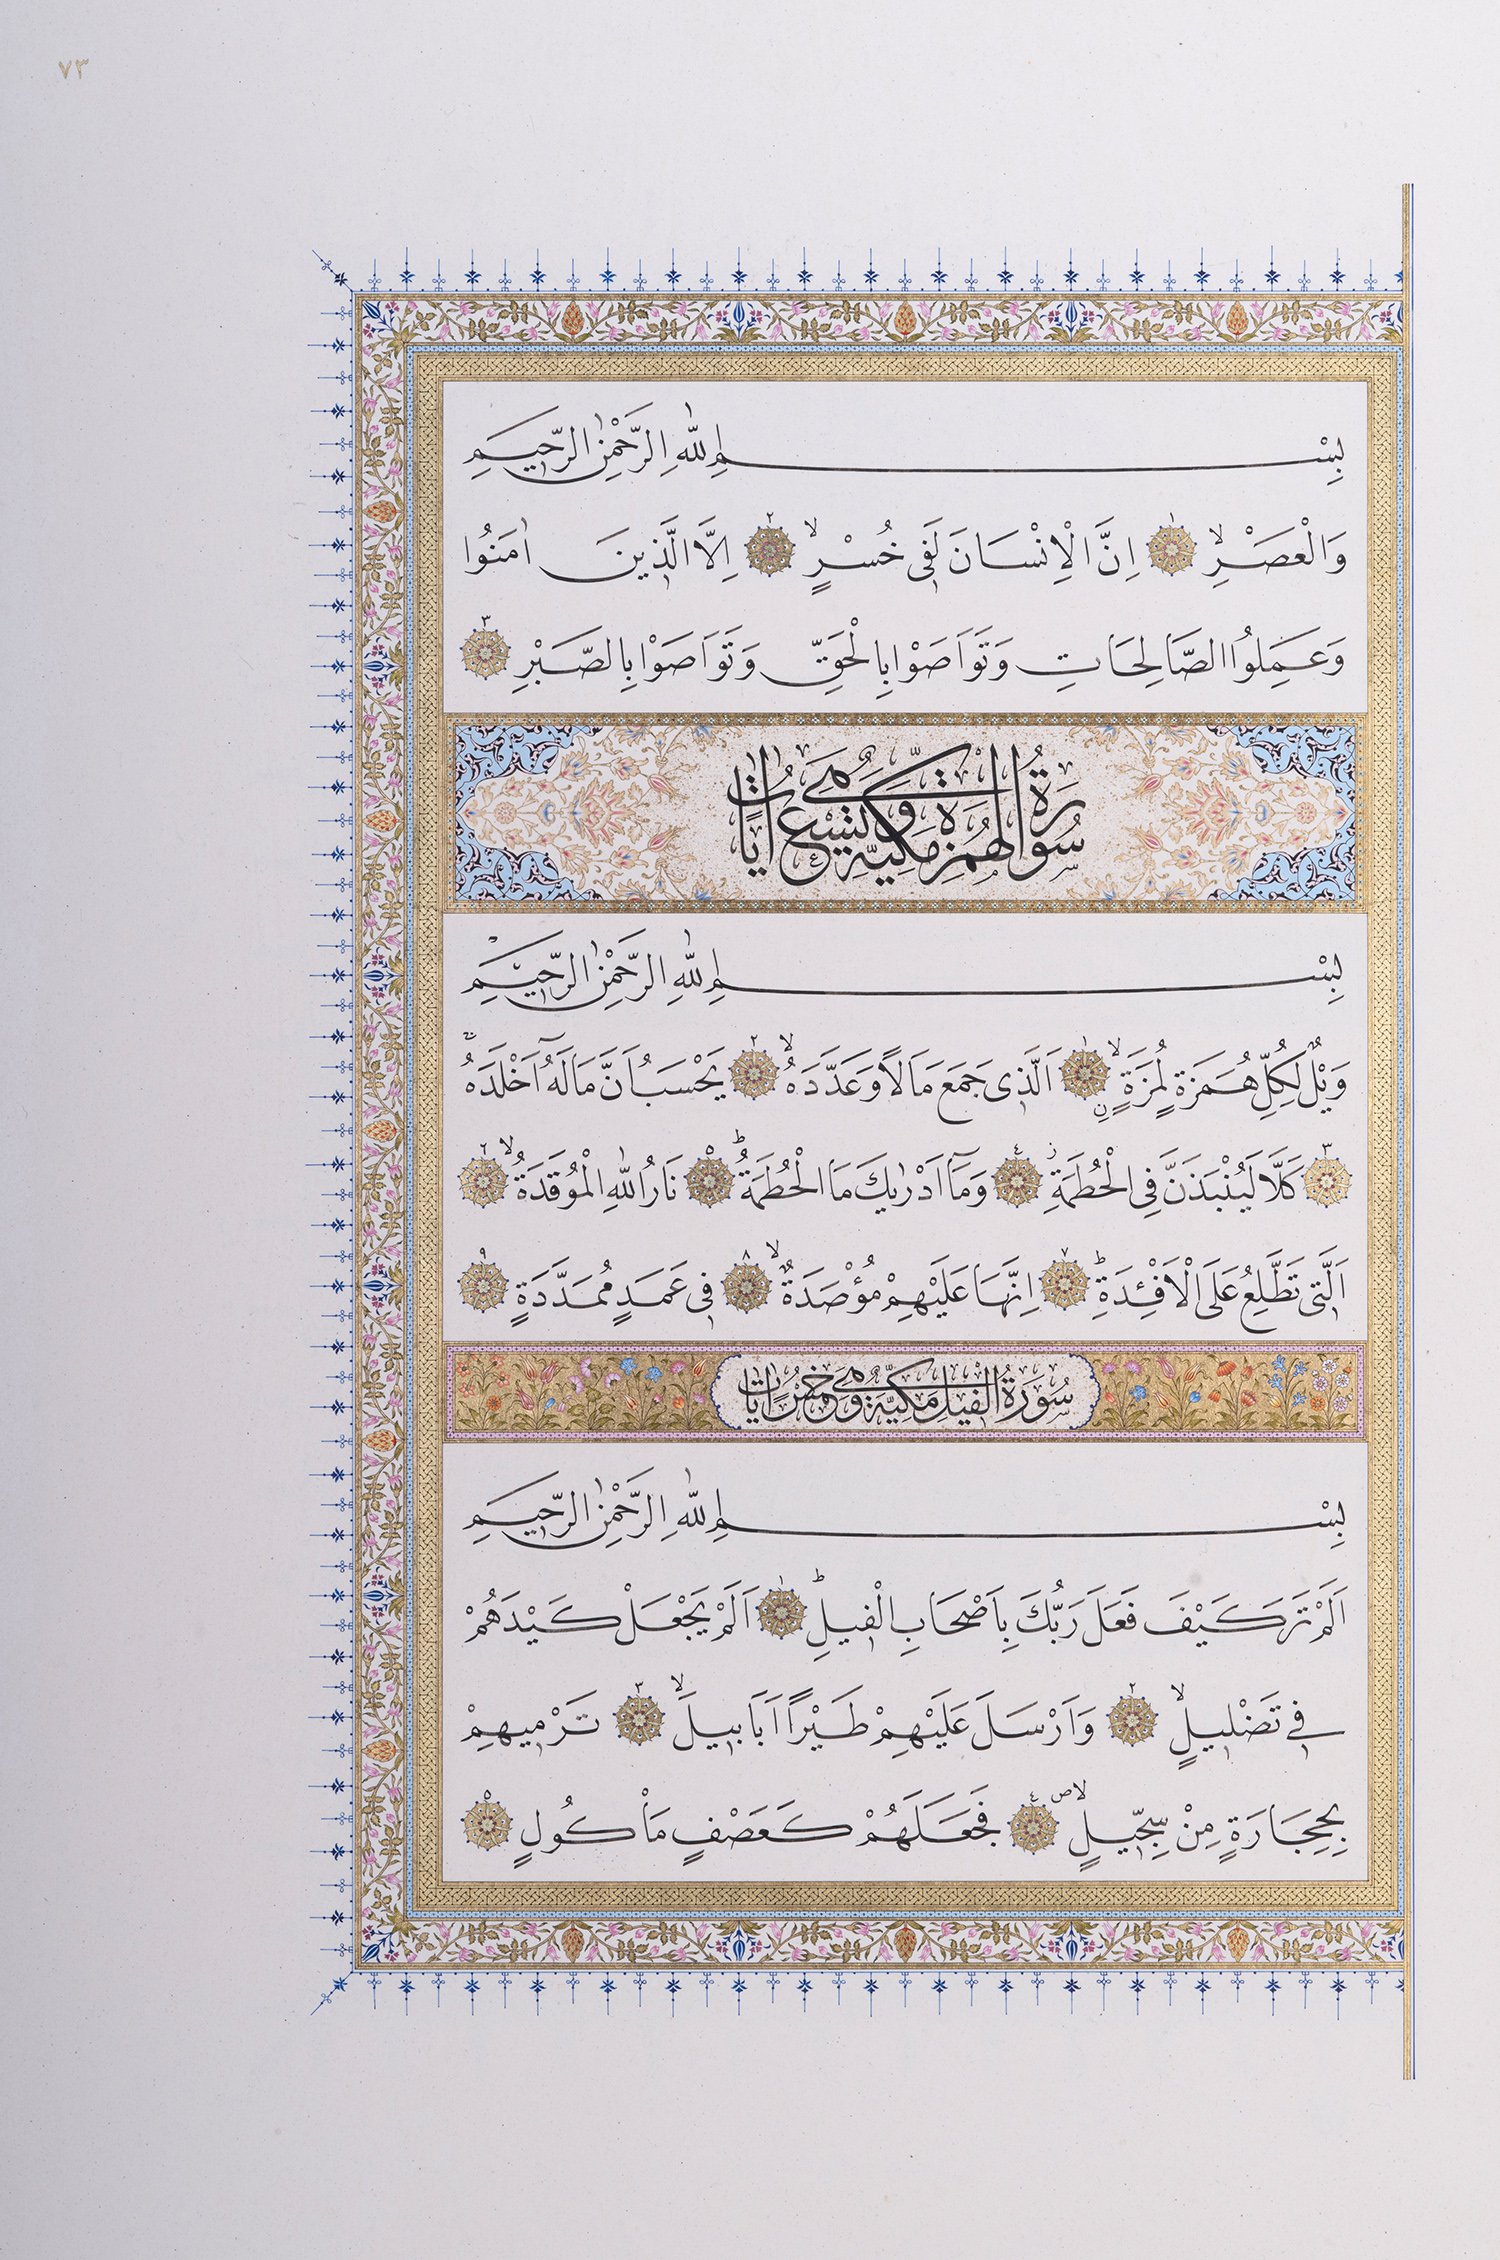 ٧٣
بِسْمِ اللّٰهِ الرَّحْمٰنِ الرَّحٖيمِ
وَالْعَصْرِۙ ١ اِنَّ الْاِنْسَانَ لَفٖى خُسْرٍۙ ٢ اِلَّا الَّذٖينَ اٰمَنُوا
وَعَمِلُوا الصَّالِحَاتِ وَتَوَاصَوْا بِالْحَقِّ وَتَوَاصَوْا بِالصَّبْرِ ٣
سُورَةُ الْهُمَزَةِ مَكِّيَّةٌ وَهِيَ تِسْعُ اٰيَاتٍ
بِسْمِ اللّٰهِ الرَّحْمٰنِ الرَّحٖيمِ
وَيْلٌ لِكُلِّ هُمَزَةٍ لُمَزَةٍۙ ١ اَلَّذٖى جَمَعَ مَالًا وَعَدَّدَهُۙ ٢ يَحْسَبُ اَنَّ مَالَهُٓ اَخْلَدَهُۚ
٣ كَلَّا لَيُنْبَذَنَّ فِى الْحُطَمَةِۘ ٤ وَمَٓا اَدْرٰيكَ مَا الْحُطَمَةُؕ ٥ نَارُ اللّٰهِ الْمُوقَدَةُۙ ٦
اَلَّتٖى تَطَّلِعُ عَلَى الْاَفْـِٔدَةِؕ ٧ اِنَّهَا عَلَيْهِمْ مُؤْصَدَةٌۙ ٨ فٖى عَمَدٍ مُمَدَّدَةٍ ٩
سُورَةُ الْفٖيلِ مَكِّيَّةٌ وَهِيَ خَمْسُ اٰيَاتٍ
بِسْمِ اللّٰهِ الرَّحْمٰنِ الرَّحٖيمِ
اَلَمْ تَرَ كَيْفَ فَعَلَ رَبُّكَ بِاَصْحَابِ الْفٖيلِؕ ١ اَلَمْ يَجْعَلْ كَيْدَهُمْ
فٖى تَضْلٖيلٍۙ ٢ وَاَرْسَلَ عَلَيْهِمْ طَيْرًا اَبَابٖيلَۙ ٣ تَرْمٖيهِمْ
بِحِجَارَةٍ مِنْ سِجّٖيلٍۙ ٤ فَجَعَلَهُمْ كَعَصْفٍ مَاْكُولٍ ٥